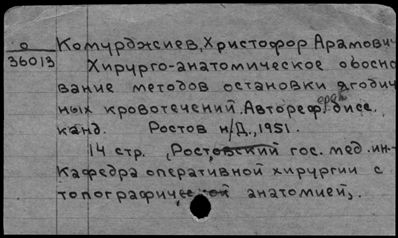 о
36013
Комурджиев, Христофор Арамович
Хирурго-анатомическое обосно
вание методов остановки ягодич
ных кровотечений. Автореф. дисс.
канд. Ростов н/Д., 1951.
14 стр. (Ростовский гос. мед. ин-
Кафедра оперативной хирургии с
топографической анатомией).